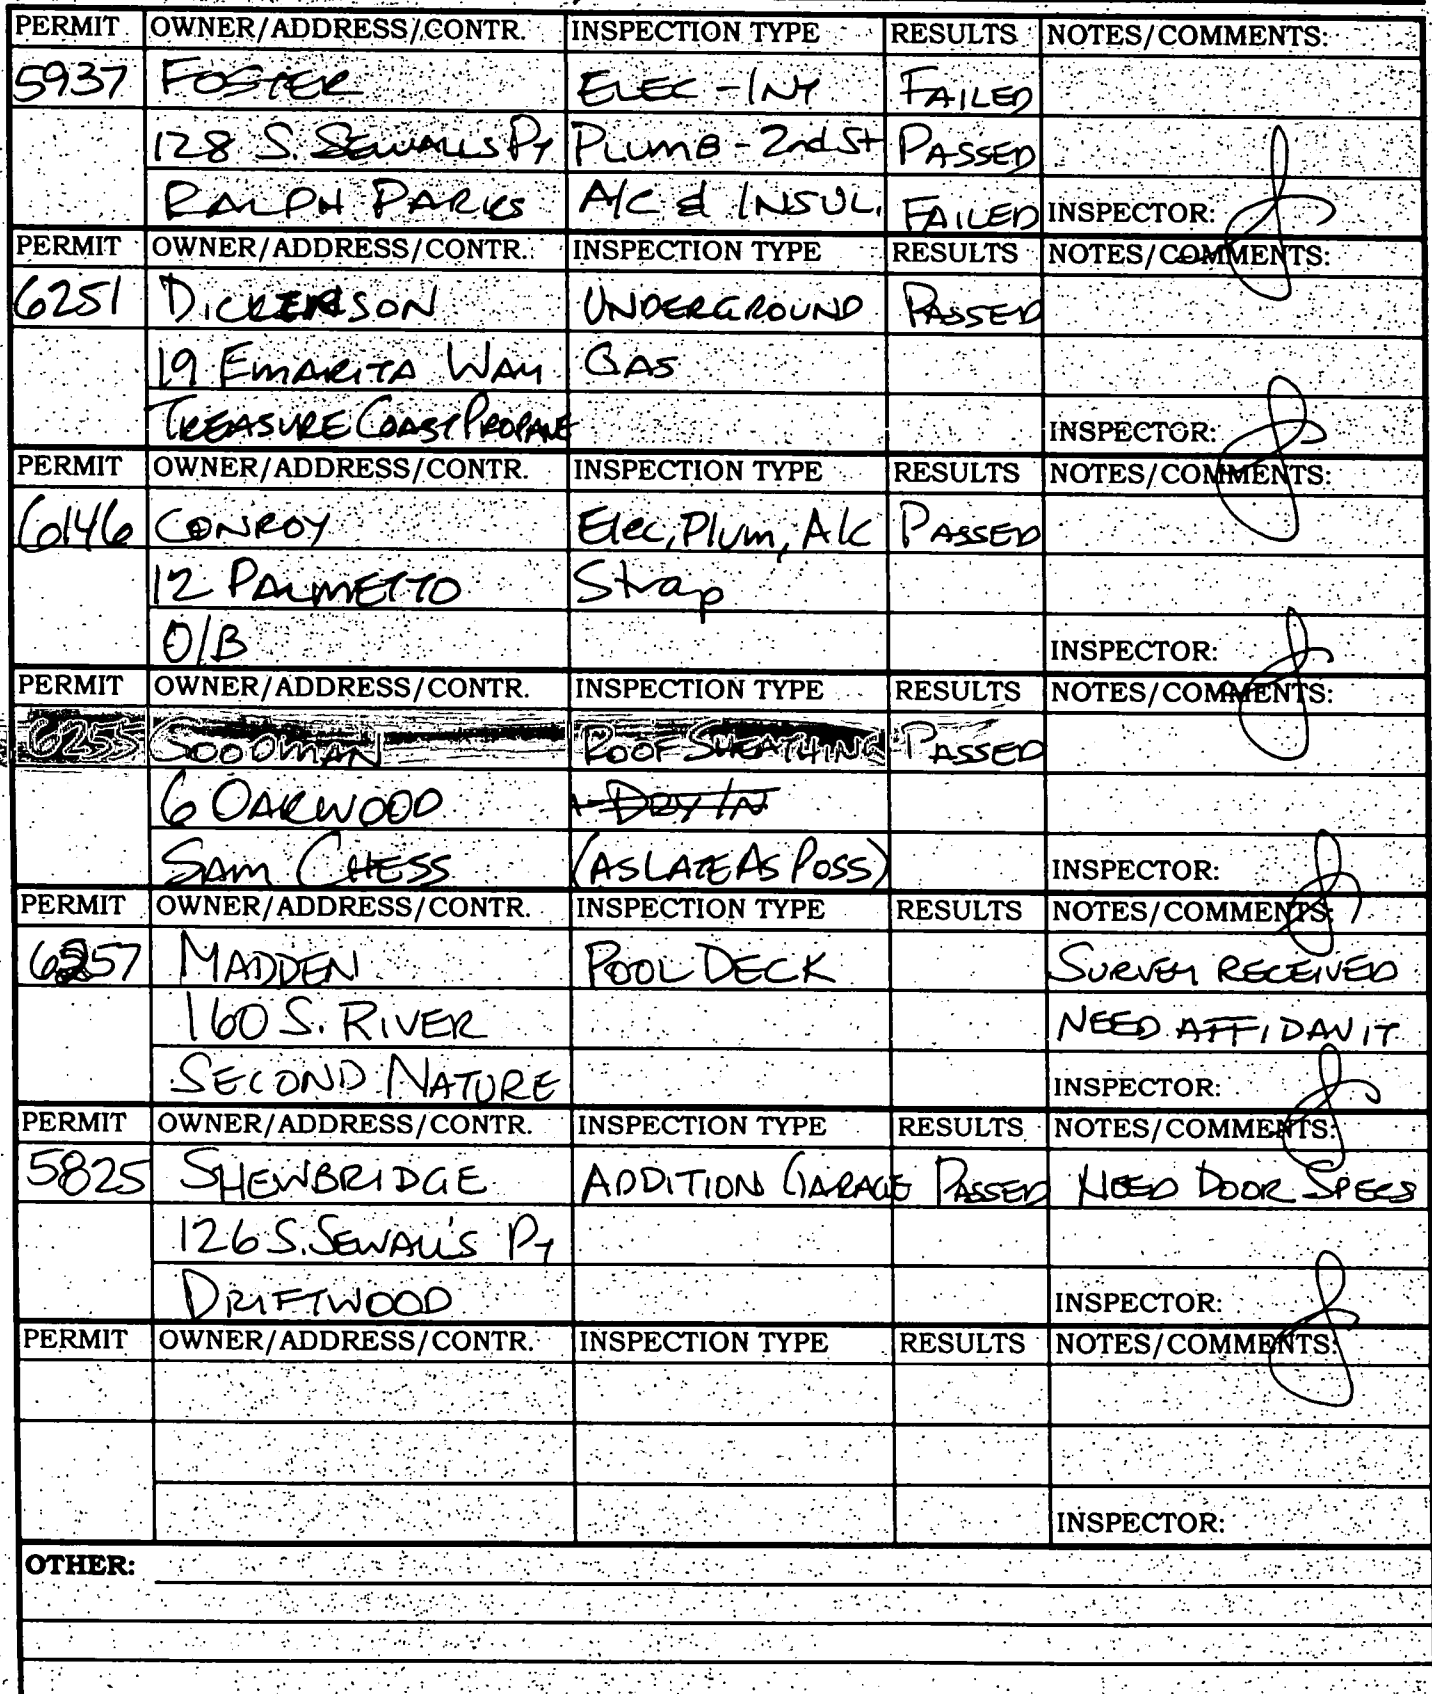 PERMIT OWNER/ADDRESS/CONTR. INSPECTION TYPE RESULTS NOTES/COMMENTS:
5937 FOSTER ELEC - INT FAILED
128 S. SEWALLS PT PLUMB - 2nd St PASSED
RALPH PARKS A/C & INSUL. FAILED INSPECTOR:
PERMIT OWNER/ADDRESS/CONTR. INSPECTION TYPE RESULTS NOTES/COMMENTS:
6251 DICKERSON UNDERGROUND PASSED
19 EMARITA WAY GAS
TREASURE COAST PROPANE INSPECTOR:
PERMIT OWNER/ADDRESS/CONTR. INSPECTION TYPE RESULTS NOTES/COMMENTS:
6146 CONROY Elec, Plum, A/C PASSED
12 PALMETTO Strap
O/B INSPECTOR:
PERMIT OWNER/ADDRESS/CONTR. INSPECTION TYPE RESULTS NOTES/COMMENTS:
6255 ROOF SHEATHING PASSED
6 OAKWOOD DRY IN
SAM CHESS (AS LATE AS POSS) INSPECTOR:
PERMIT OWNER/ADDRESS/CONTR. INSPECTION TYPE RESULTS NOTES/COMMENTS:
6257 MADDEN POOL DECK SURVEY RECEIVED
160 S. RIVER NEED AFFIDAVIT
SECOND NATURE INSPECTOR:
PERMIT OWNER/ADDRESS/CONTR. INSPECTION TYPE RESULTS NOTES/COMMENTS:
5825 SHEWBRIDGE ADDITION GARAGE PASSED NEED DOOR SPECS
126 S. SEWALL'S PT
DRIFTWOOD INSPECTOR:
PERMIT OWNER/ADDRESS/CONTR. INSPECTION TYPE RESULTS NOTES/COMMENTS:
INSPECTOR:
OTHER: